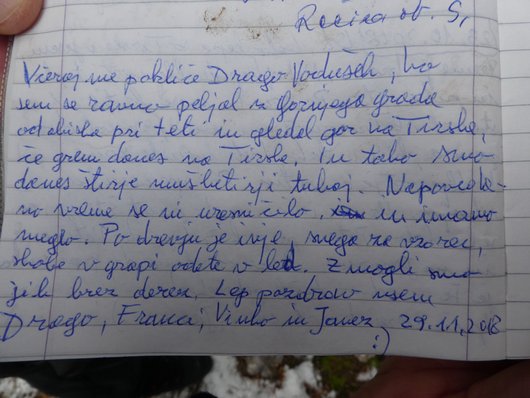 Recica ob. S,
Včeraj me pokliče Drago Vodušek, ko
sem se ravno peljal iz Gornjega grada
od obiska pri teti in gledal gor na Tirske,
če grem danes na Tirske. In tako smo
danes štirje mušketirji tukaj. Napoveda-
no vreme se ni uresničilo in imamo
meglo. Po drevju je ivje, snega za vzorec,
skobe v grapi odete v led. Zmogli smo
jih brez derez. Lep pozdrav vsem
Drago, Franci, Vinko in Janez 29.11.2018
:)